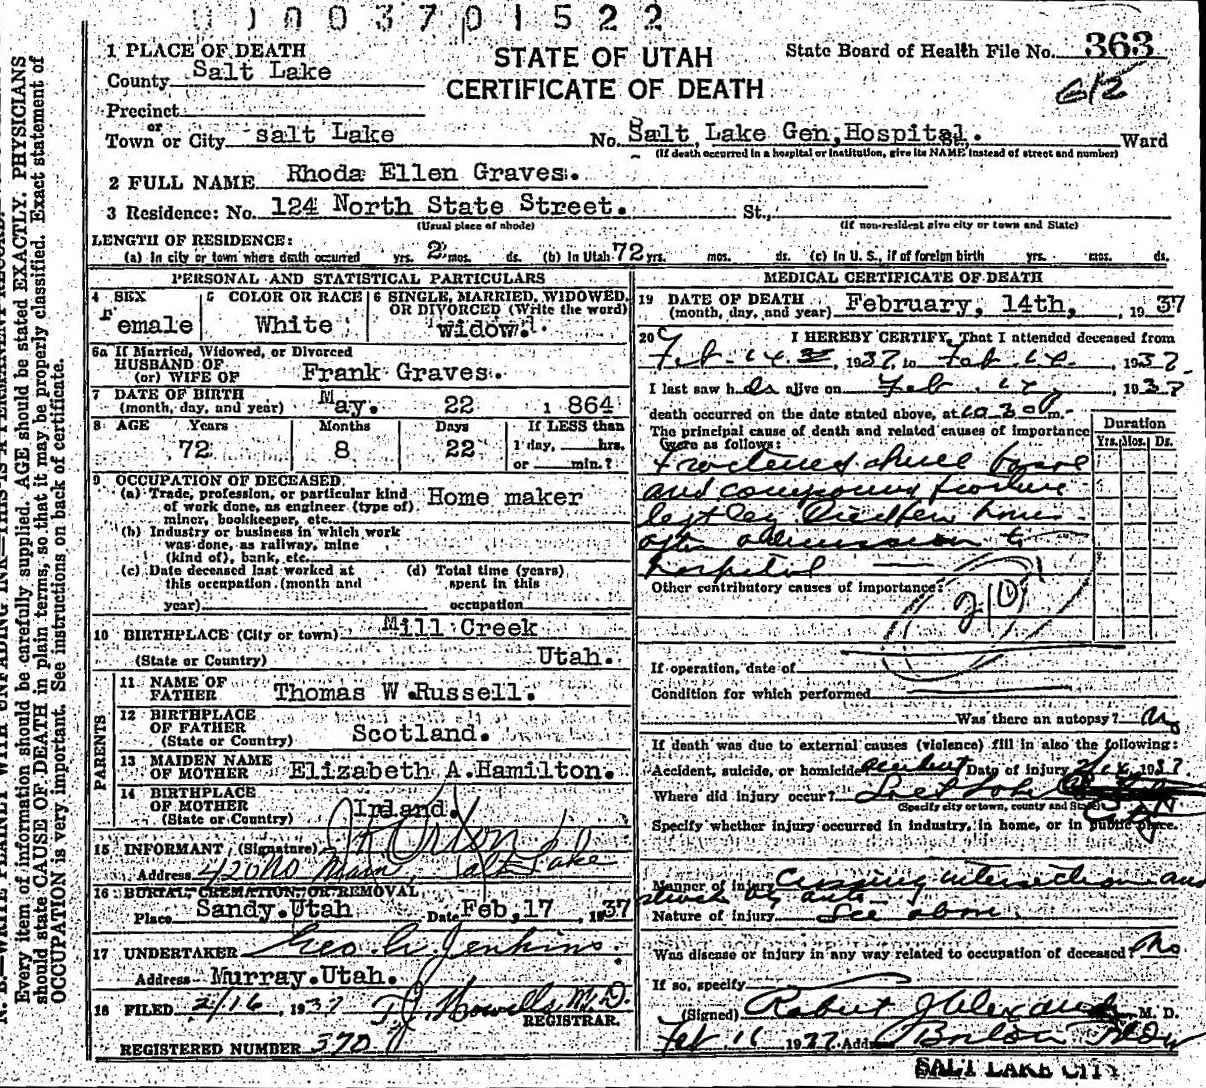 0 1 0 0 3 7 0 1 5 2 2
STATE OF UTAH
CERTIFICATE OF DEATH
State Board of Health File No. 363
612
1 PLACE OF DEATH
County Salt Lake
Precinct
or
Town or City salt Lake No. Salt Lake Gen, Hospital. Ward
(If death occurred in a hospital or institution, give its NAME instead of street and number)
2 FULL NAME Rhoda Ellen Graves.
3 Residence: No. 124 North State Street. St.,
(Usual place of abode) (If non-resident give city or town and State)
LENGTH OF RESIDENCE:
(a) In city or town where death occurred yrs. 2 mos. ds. (b) In Utah 72 yrs. mos. ds. (c) In U. S., if of foreign birth yrs. mos. ds.
PERSONAL AND STATISTICAL PARTICULARS
4 SEX Female
5 COLOR OR RACE White
6 SINGLE, MARRIED, WIDOWED, OR DIVORCED (Write the word) widow.
6a If Married, Widowed, or Divorced
HUSBAND OF
(or) WIFE OF Frank Graves.
7 DATE OF BIRTH
(month, day, and year) May. 22 1864
8 AGE Years Months Days If LESS than
72 8 22 1 day, hrs.
or min.?
9 OCCUPATION OF DECEASED
(a) Trade, profession, or particular kind of work done, as engineer (type of) miner, bookkeeper, etc. Home maker
(b) Industry or business in which work was done, as railway, mine (kind of), bank, etc.
(c) Date deceased last worked at this occupation (month and year)
(d) Total time (years) spent in this occupation
10 BIRTHPLACE (City or town) Mill Creek
(State or Country) Utah.
PARENTS
11 NAME OF FATHER Thomas W. Russell.
12 BIRTHPLACE OF FATHER
(State or Country) Scotland.
13 MAIDEN NAME OF MOTHER Elizabeth A. Hamilton.
14 BIRTHPLACE OF MOTHER
(State or Country) Irland.
15 INFORMANT (Signature)
Address 420 No Main, Salt Lake
16 BURIAL, CREMATION, OR REMOVAL
Place Sandy. Utah Date Feb, 17, 1937
17 UNDERTAKER Geo. Jenkins.
Address Murray. Utah.
18 FILED 2/16, 1937 Howells, M.D.
REGISTRAR.
REGISTERED NUMBER 370
MEDICAL CERTIFICATE OF DEATH
19 DATE OF DEATH
(month, day, and year) February, 14th, 1937
20 I HEREBY CERTIFY, That I attended deceased from
Feb. 14, 1937, to Feb 14, 1937
I last saw h alive on Feb 14, 1937
death occurred on the date stated above, at m.
The principal cause of death and related causes of importance were as follows:
Duration
Yrs. Mos. Ds.
Fractured skull base
and compound fracture
left leg Died few hours
after admission to
hospital
Other contributory causes of importance:
210
If operation, date of
Condition for which performed
Was there an autopsy? No
If death was due to external causes (violence) fill in also the following:
Accident, suicide, or homicide accident Date of injury 2/14, 1937
Where did injury occur? Salt Lake City
(Specify city or town, county and State)
Specify whether injury occurred in industry, in home, or in public place.
Manner of injury Crossing intersection and
struck by auto
Nature of injury See above.
Was disease or injury in any way related to occupation of deceased? No
If so, specify
(Signed) Robert J Alexander M. D.
Feb 1937 Address
SALT LAKE CITY
N. B.—WRITE PLAINLY WITH UNFADING INK—THIS IS A PERMANENT RECORD.
Every item of information should be carefully supplied. AGE should be stated EXACTLY. PHYSICIANS
should state CAUSE OF DEATH in plain terms, so that it may be properly classified. Exact statement of
OCCUPATION is very important. See instructions on back of certificate.